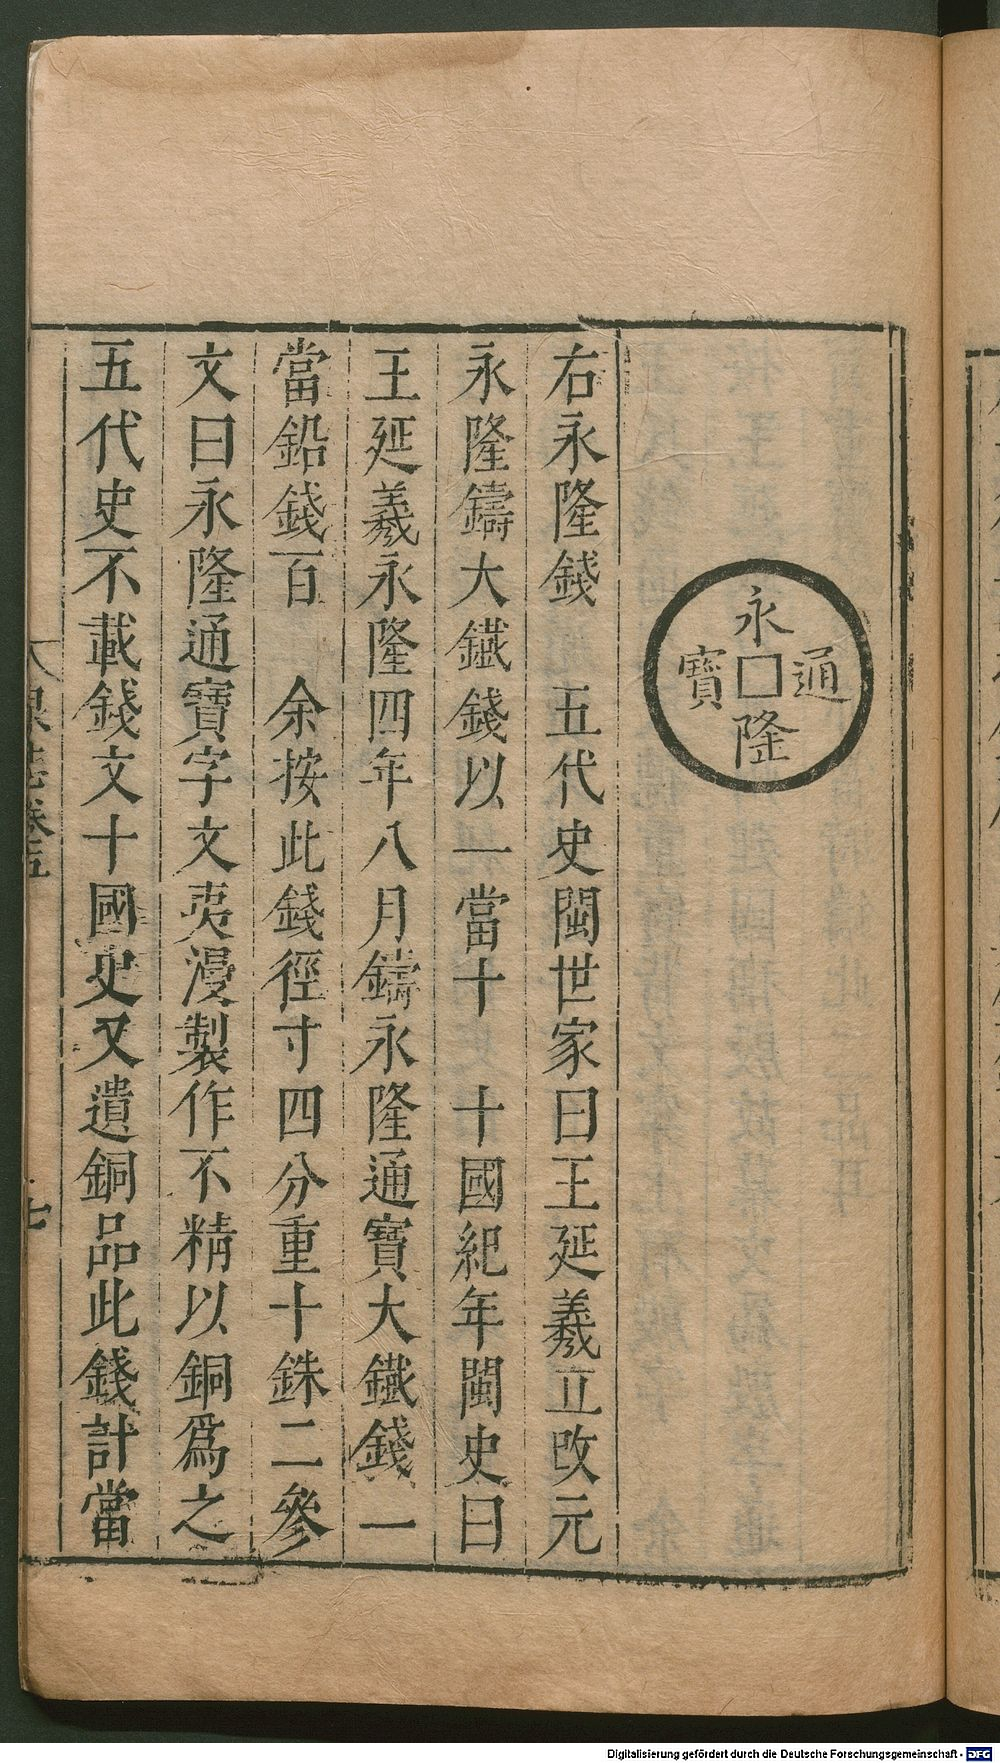 永隆通寶
右永隆錢　五代史閩世家曰王延羲立改元
永隆鑄大鐵錢以一當十　十國紀年閩史曰
王延羲永隆四年八月鑄永隆通寶大鐵錢一
當鉛錢百　余按此錢徑寸四分重十銖二參
文曰永隆通寶字文夷漫製作不精以銅爲之
五代史不載錢文十國史又遺銅品此錢計當
泉志卷五
七
Digitalisierung gefördert durch die Deutsche Forschungsgemeinschaft - DFG